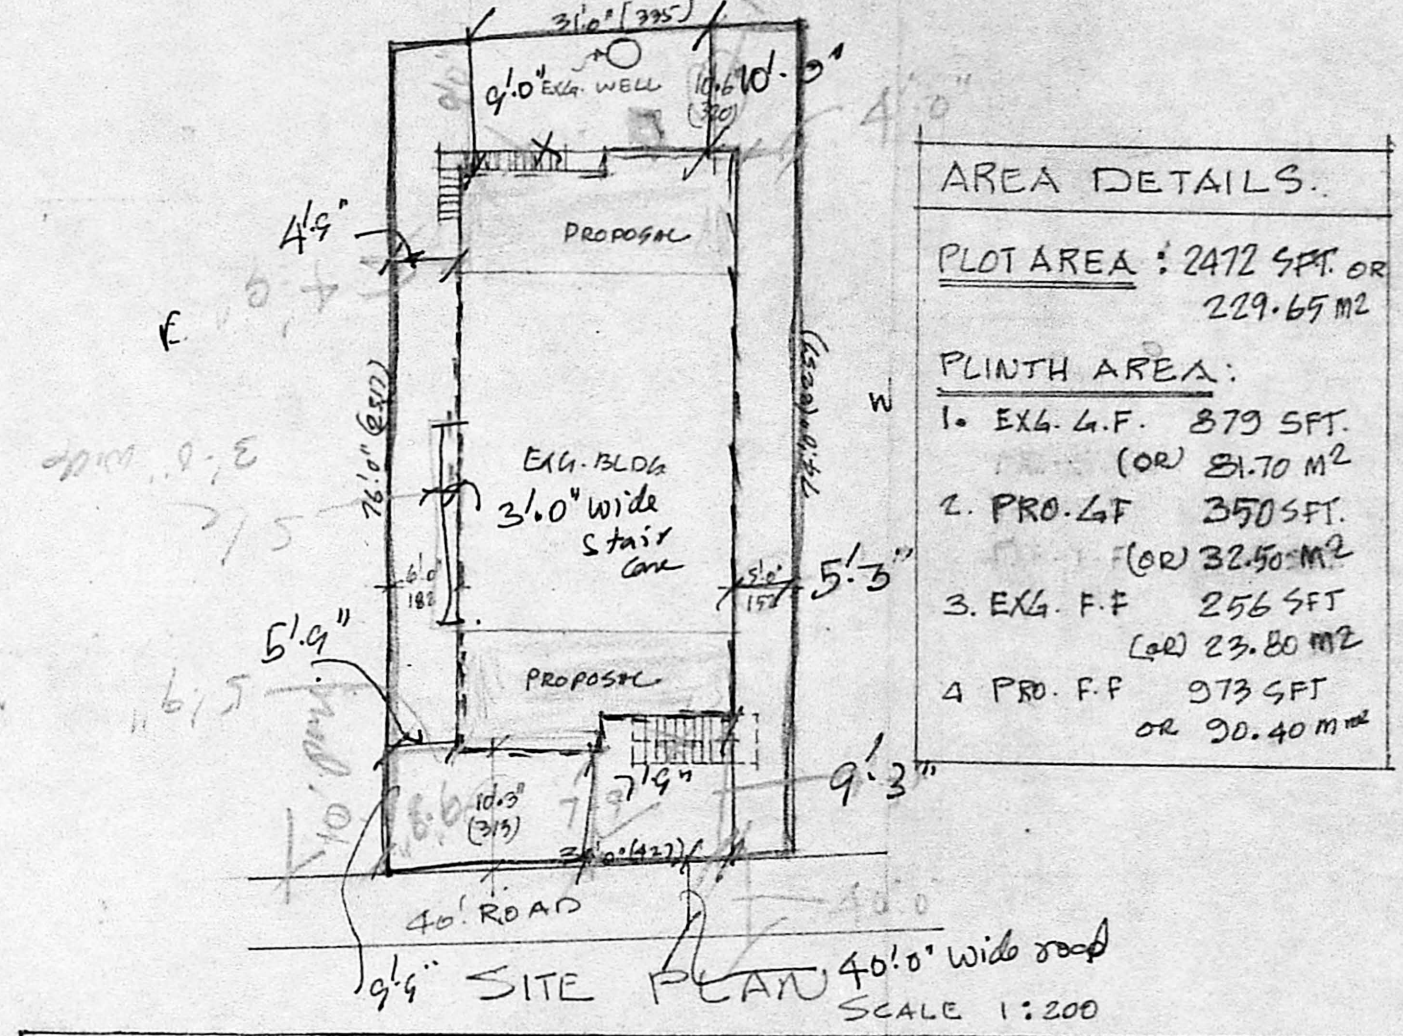 31'.0" (335)
9'.0" EXG. WELL
10'.6
(320)
10'-0"
4'.0"
4'.9"
PROPOSAL
4'.9
E.
W
EXG. BLDG
3'.0" wide
Stair
Case
3'.0" wide
S/C
6'.0"
182
5'.0"
152
5'.3"
5'.9"
5'.9"
PROPOSAL
7'.9"
9'.3"
10'.3"
(313)
40'. ROAD
40'.0
9'.9"
SITE PLAN
40'.0" wide road
SCALE 1:200
AREA DETAILS.
PLOT AREA : 2472 SFT. OR
229.65 M2
PLINTH AREA:
1. EXG. G.F. 879 SFT.
(OR) 81.70 M2
2. PRO. GF 350 SFT.
(OR) 32.50 M2
3. EXG. F.F 256 SFT
(OR) 23.80 M2
4 PRO. F.F 973 SFT
OR 90.40 M